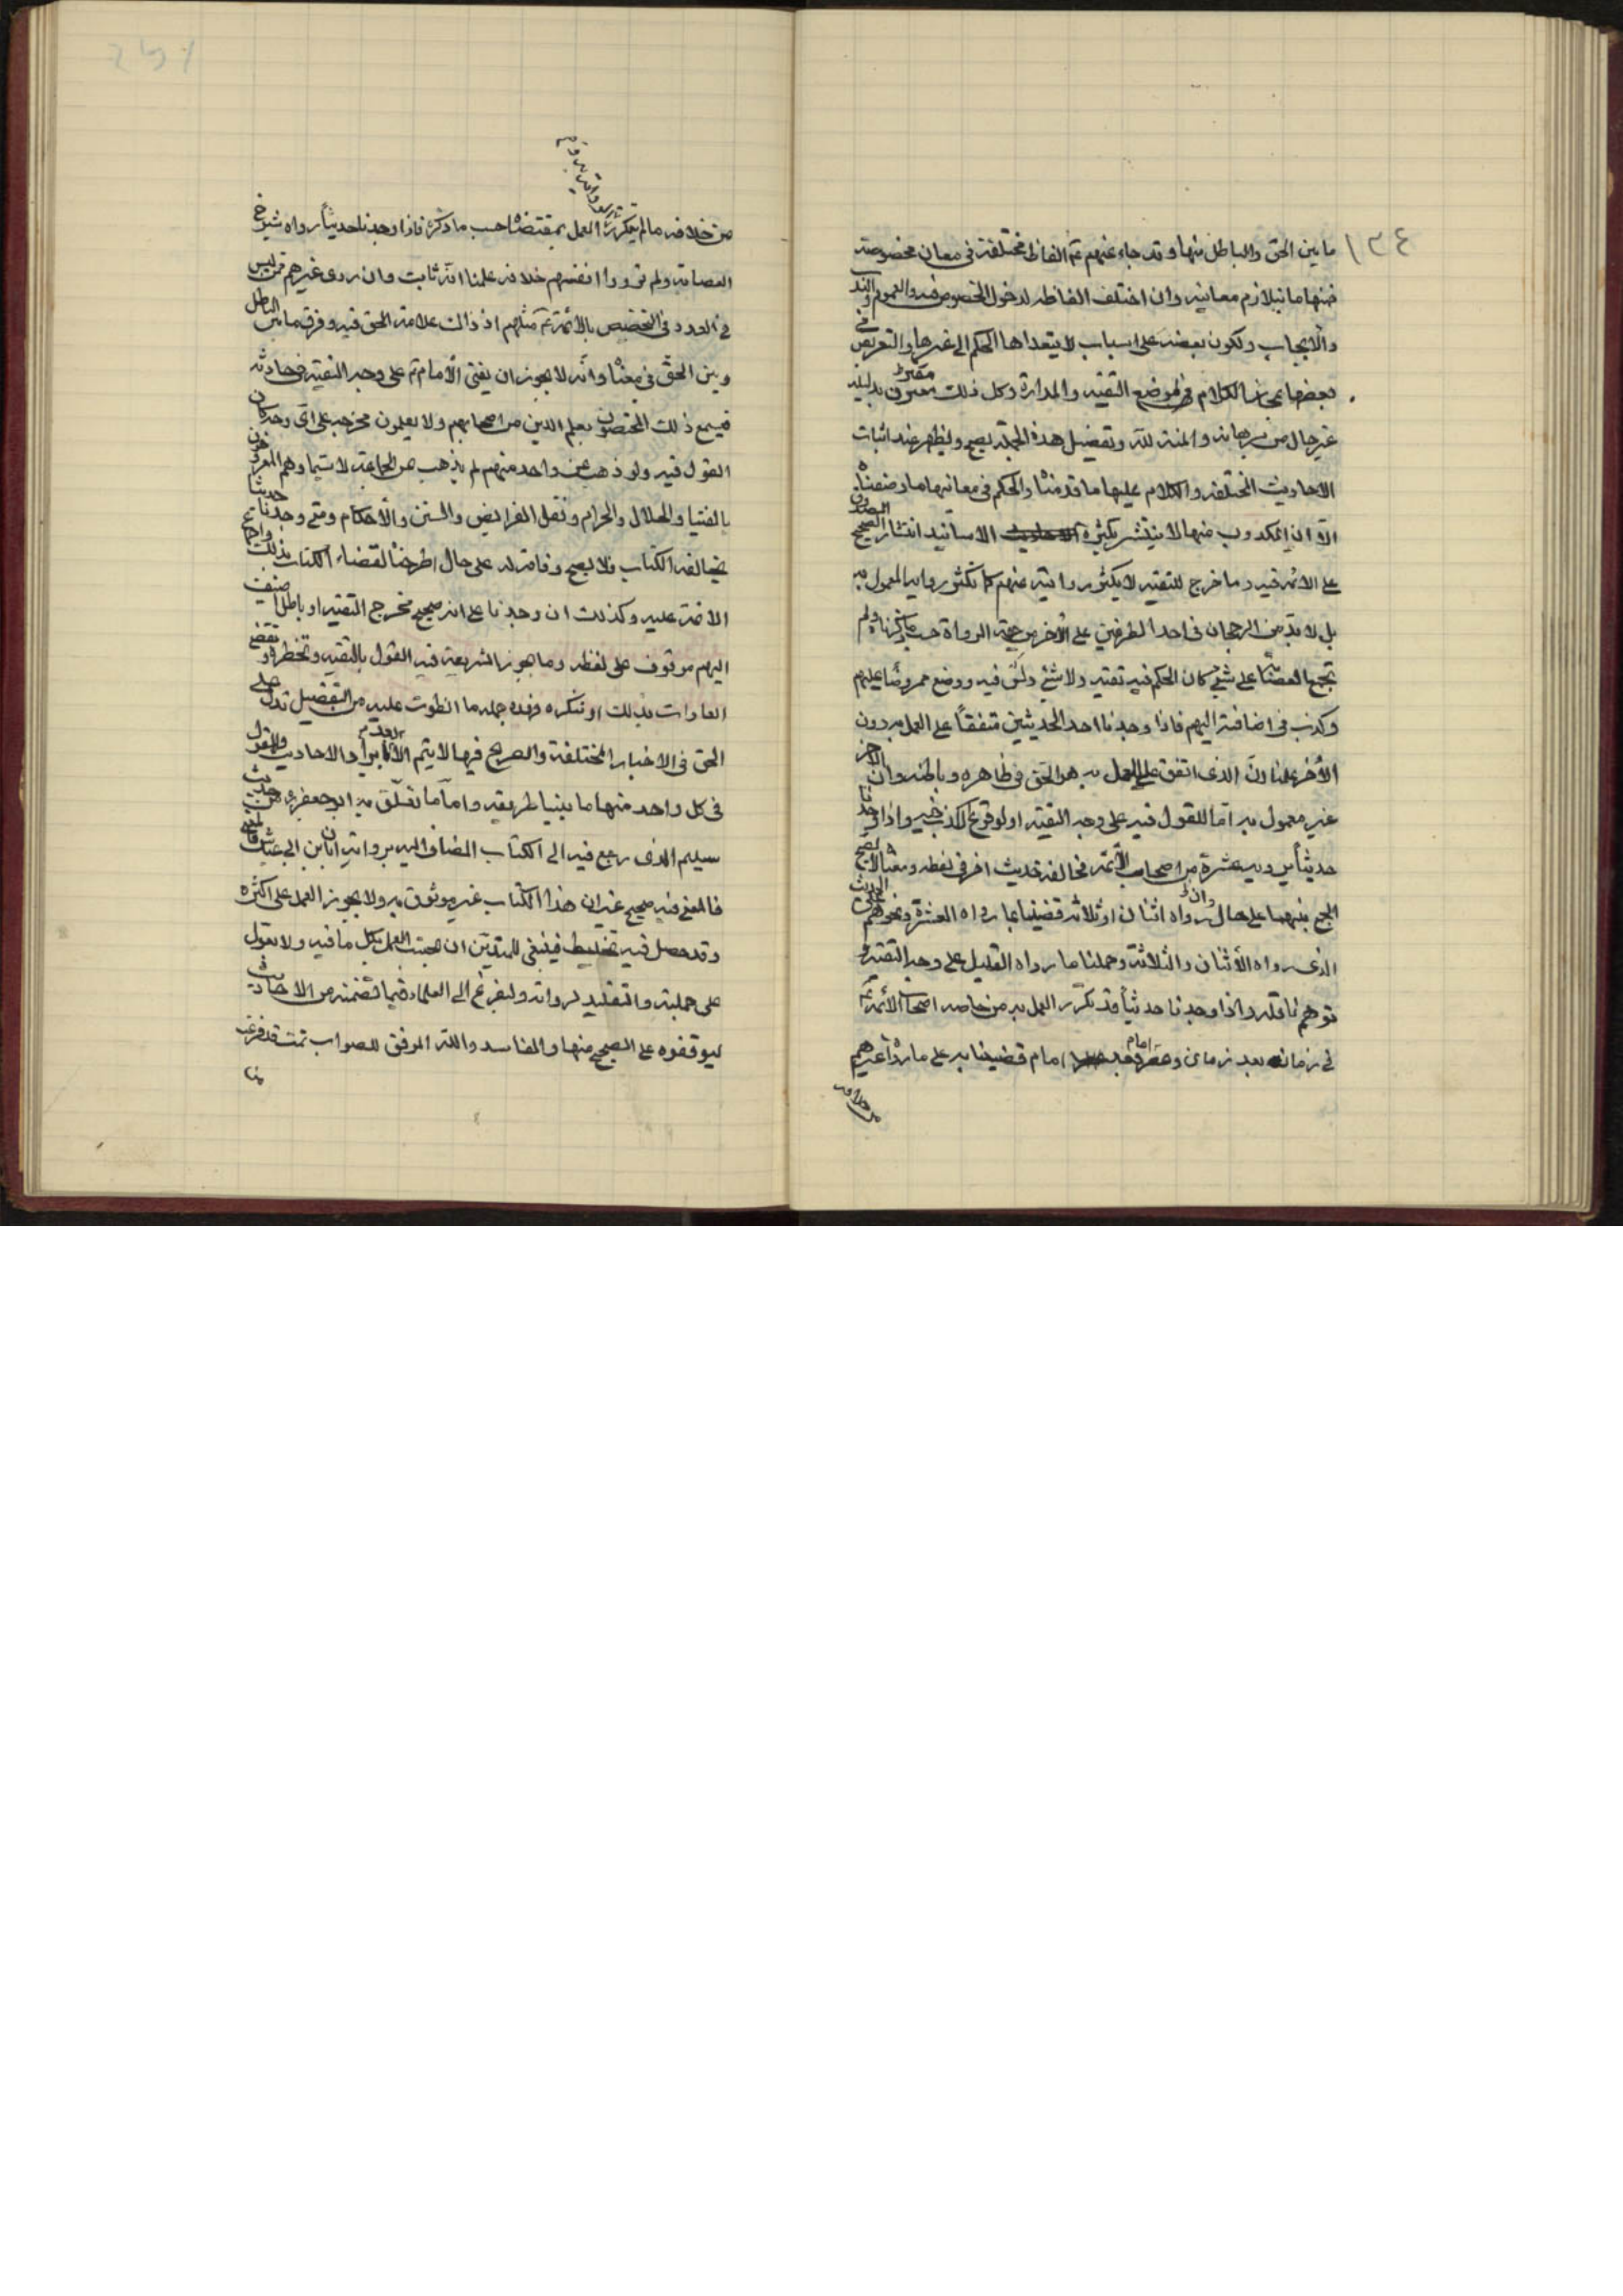 ١٣٤
ما بين الحق والباطل منها وقد جاء عنهم ع الفاظ مختلفة في معان مخصوصة
فمنها ما تتلازم معانيه وان اختلف الفاظه لدخول الخصوص فيه والعموم والندب
والايجاب ولكون بعضه على اسباب لا يتعداها الحكم الى غيرها والتعريض في
بعضها بمجاز الكلام لموضع التقية والمداراة وكل ذلك مقترن بدليله
غير خال من برهانه والمنة لله وتفصيل هذه الجملة يصح ويظهر عند اثبات
الاحاديث المختلفة والكلام عليها ما قدمناه والحكم في معانيها ما وصفناه
الا ان المكذوب منها لا ينتشر بكثرة الاسانيد انتشار الصحيح المصدوق
على الائمه فيه وما خرج للتقيه لا يكثر روايته عنهم كما تكثر روايه المعمول به
بل لا بد من الرجحان في احد الطرفين على الآخر من جهة الرواة حسب ما ذكرناه ولم
تجمع العصابة على شيء كان الحكم فيه تقيه ولا شيء دلس فيه ووضع مخروصا عليهم
وكذب في اضافته اليهم فاذا وجدنا احد الحديثين متفقاً على العمل به دون
الآخر علمنا ان الذي اتفق على العمل به هو الحق في ظاهره وباطنه وان الآخر
غير معمول به اما للقول فيه على وجه التقية او لوقوع الكذب فيه واذا وجدنا
حديثاً يرويه عشرة من اصحاب الائمة يخالفه حديث اخر في لفظه ومعناه لا يصح
الجمع بينهما على حال وان رواه اثنان او ثلاثه قضينا بما رواه العشرة ونحوهم على الحديث
الذي رواه الأثنان والثلاثة وحملنا ما رواه القليل على وجه التقية او
توهم ناقله واذا وجدنا حديثاً قد تكرر العمل به من خاصه اصحاب الائمة ع
في زمان بعد زمان وعصر امام بعد امام قضينا به على ما رواه غيرهم
من خلافه
من خلافه ما لم تتكرر الروايه به والعمل بمقتضاه حسب ما ذكرناه فاذا وجدنا حديثاً رواه شيوخ
العصابة ولم يوردوا انفسهم خلافه علمنا انه ثابت وان روى غيرهم ممن ليس
في العدد وفي التخصيص بالأئمة ع مثلهم اذ ذاك علامة الحق فيه وفرق ما بين الباطل
وبين الحق في معناه وانه لا يجوز ان يفتي الأمام ع على وجه التقية في حادثه
فيسمع ذلك المختصون بعلم الدين من اصحابهم ولا يعلمون مخرجه على اى وجه كان
القول فيه ولو ذهب عن واحد منهم لم يذهب عن الجماعة لا سيما وهم المعروفون
بالفتيا والحلال والحرام ونقل الفرايض والسنن والأحكام ومتى وجدنا حديثا
يخالفه الكتاب ولا يصح وفاقه له على حال اطرحناه لقضاء الكتاب بذلك واجماع
الائمة عليه وكذلك ان وجدنا على انه صحيح مخرج التقيه او باطل اضيف
اليهم موقوف على لفظه وما يجوز الشريعة فيه القول بالتقيه وتحظره وتقضي
العادات بذلك او تنكره وهذه جمله ما انطوت عليه من التفصيل تدل على
الحق في الاخبار المختلفة والصريح فيها لا يتم الا بايراد الاحاديث والقول
في كل واحد منها ما بينا طريقه واما ما تعلق به ابو جعفر ره من حديث
سليم الذى رجع فيه الى الكتاب المضاف اليه برواية ابان بن ابي عياش
فالمعنى فيه صحيح غير ان هذا الكتاب غير موثوق به ولا يجوز العمل على اكثره
وقد حصل فيه تخليط فينبغي للمتدين ان يجتنب العمل بكل ما فيه ولا يعول
على جملته والتقليد لرواته وليفزع الى العلماء فيما تضمنه من الاحاديث
ليوقفوه على الصحيح منها والفاسد والله الموفق للصواب تمت